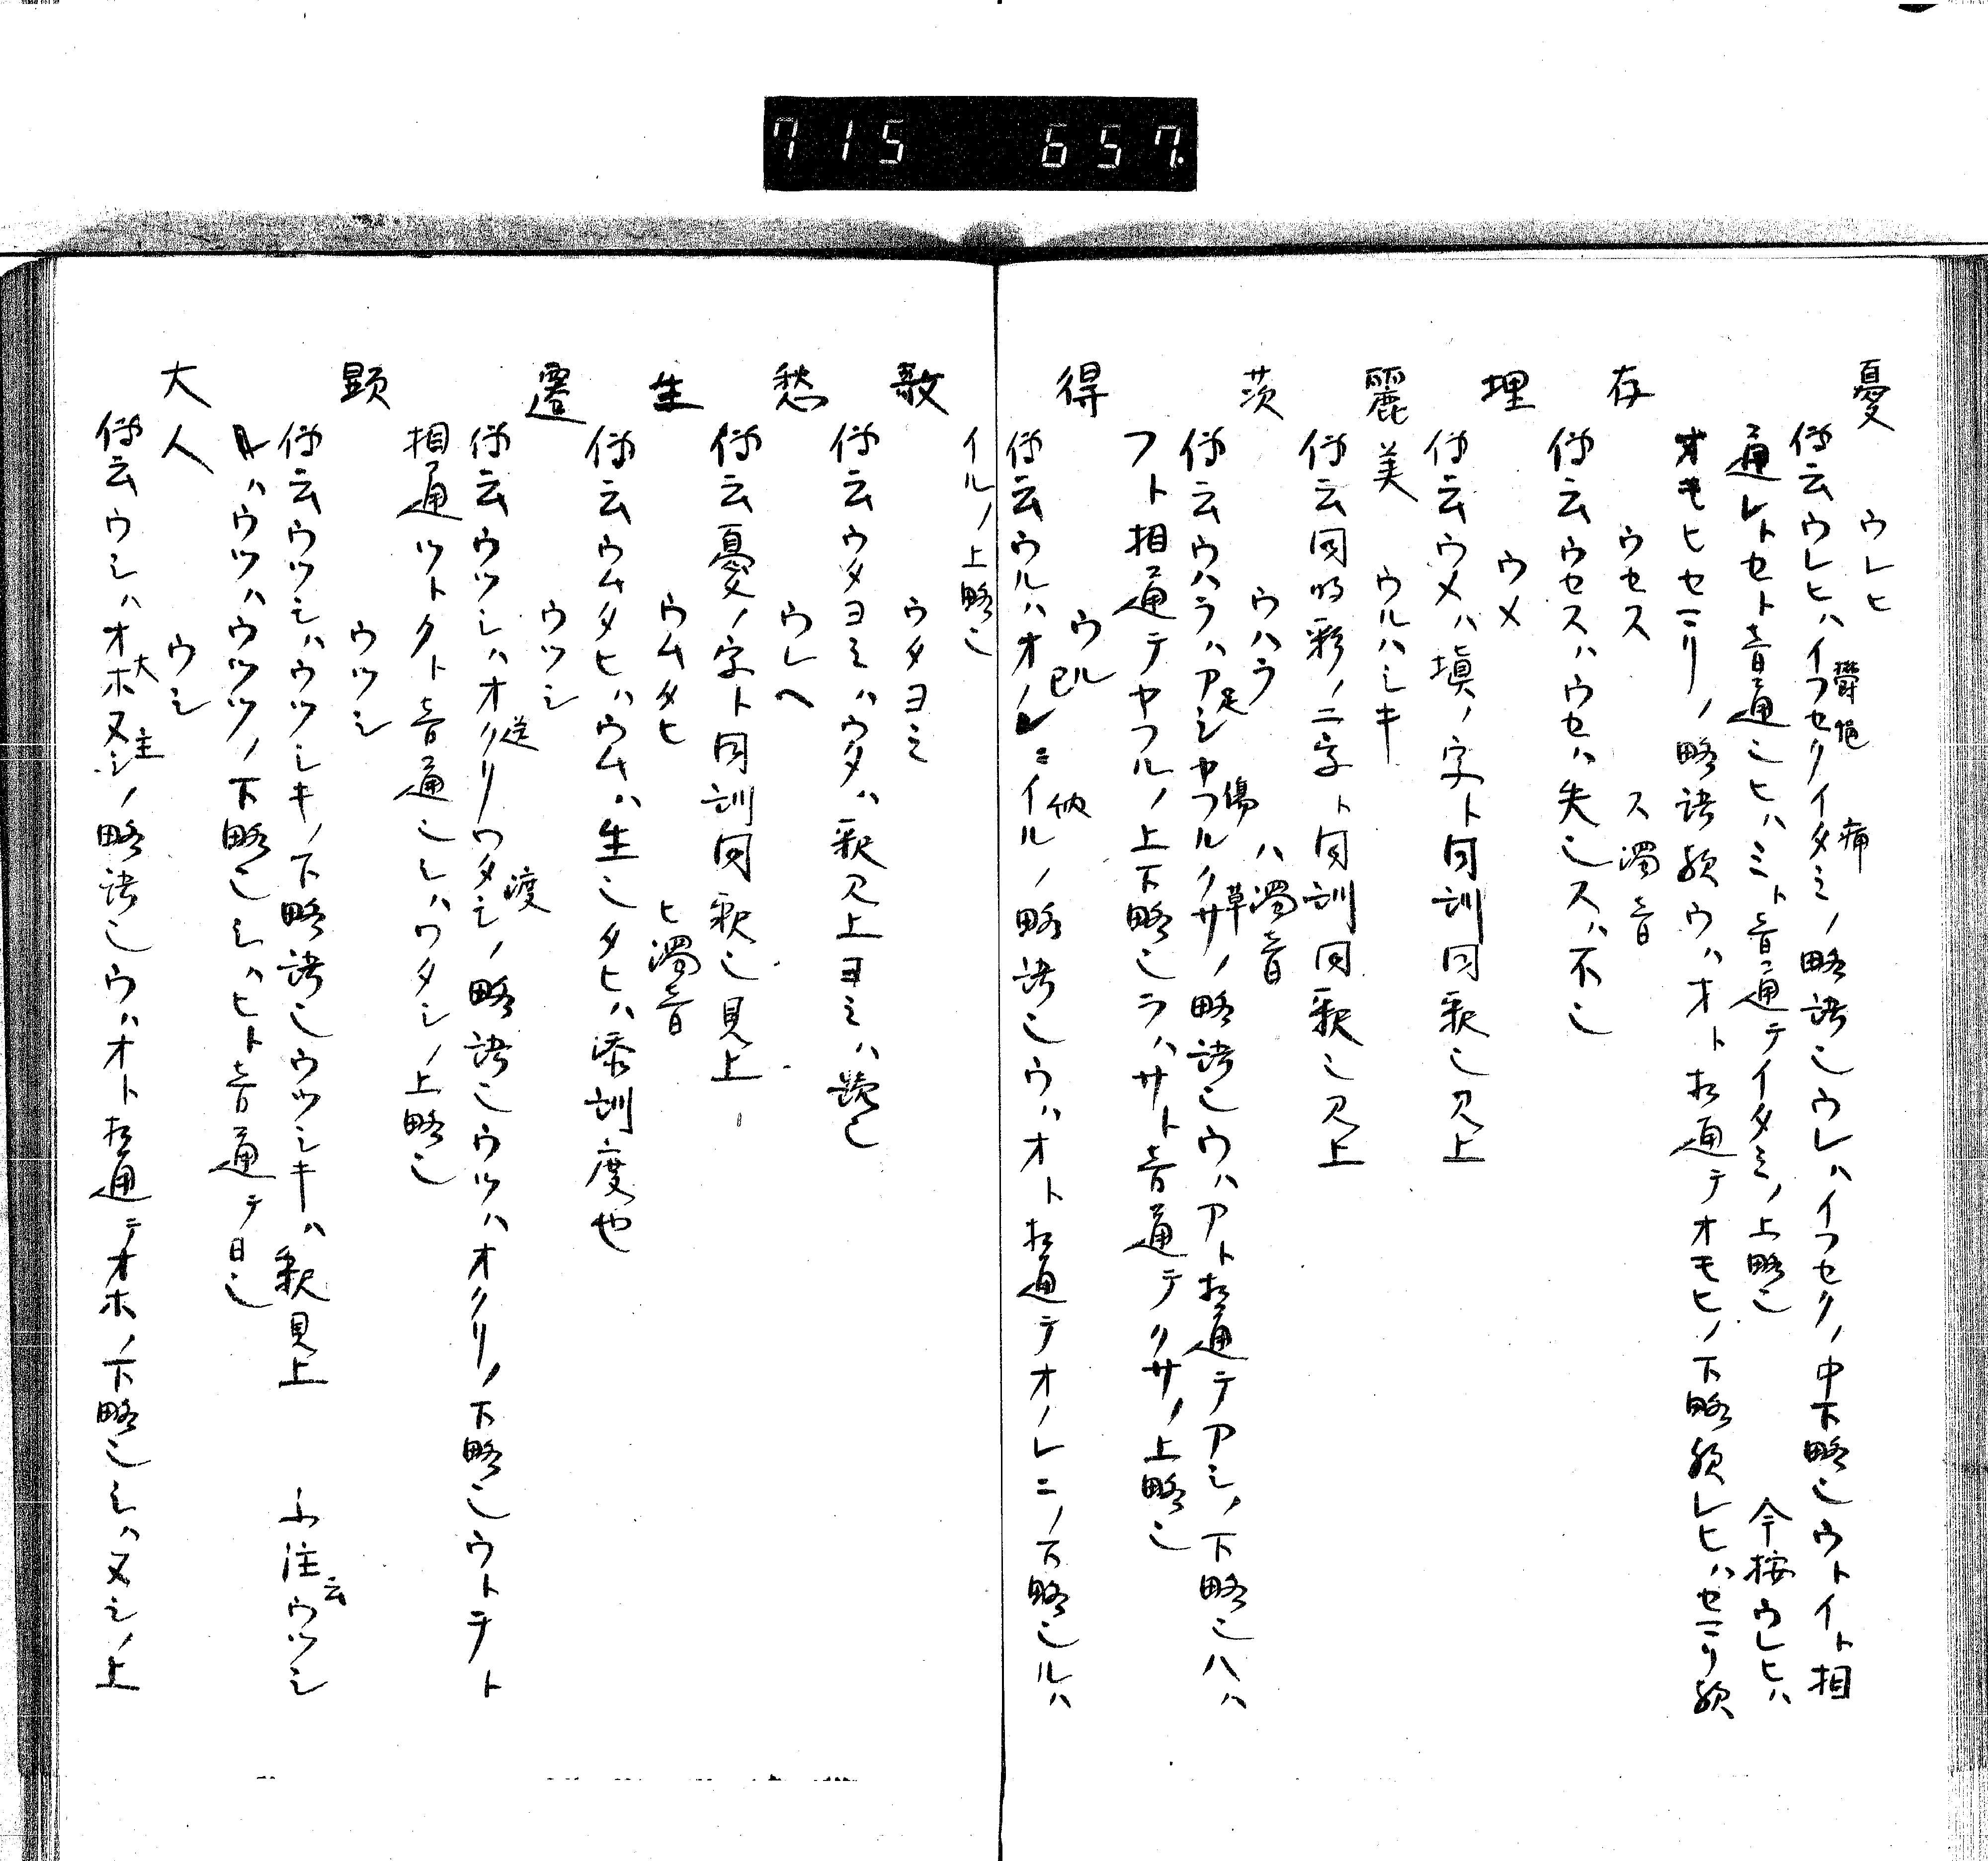 715 657.
憂 ウレヒ
師云ウレヒハイフセクイタミノ略語也ウレハイフセクノ中下略也ウトイト相
欝悒 痛
通レトセト音通也ヒハミト音通テイタミノ上略也 今按ウレヒハ
オモヒセマリノ略語歟ウハオト相通テオモヒノ下略歟レヒハセマリ歟
存 ウセス ス濁音
師云ウセスハウセハ失也スハ不也
埋 ウメ
師云ウメハ塡ノ字ト同訓同釈也見上
麗美 ウルハシキ
師云同明彩ノ二字ト同訓同釈也見上
茨 ウハラ ハ濁音
師云ウハラハアシヤフルクサノ略語也ウハアト相通テアシノ下略也ハハ
足 傷 草
フト相通テヤフルノ上下略也ラハサト音通テクサノ上略也
得 ウル
師云ウルハオノレニイルノ略語也ウハオト相通テオノレニノ下略也ルハ
己 納
イルノ上略也
歌 ウタヨミ
師云ウタヨミハウタハ釈見上ヨミハ読也
愁 ウレヘ
師云憂ノ字ト同訓同釈也見上
生 ウムタヒ ヒ濁音
師云ウムタヒハウムハ生也タヒハ添訓度也
遷 ウツシ
師云ウツシハオクリワタシノ略語也ウツハオクリノ下略也ウトオト
送 渡
相通ツトクト音通也シハワタシノ上略也
顕 ウツシ
師云ウツシハウツシキノ下略語也ウツシキハ釈見上 注云ウツシ
ハウツハウツツノ下略也シハヒト音通テ日也
大人 ウシ
師云ウシハオホヌシノ略語也ウハオト相通テオホノ下略也シハヌシノ上
大 主